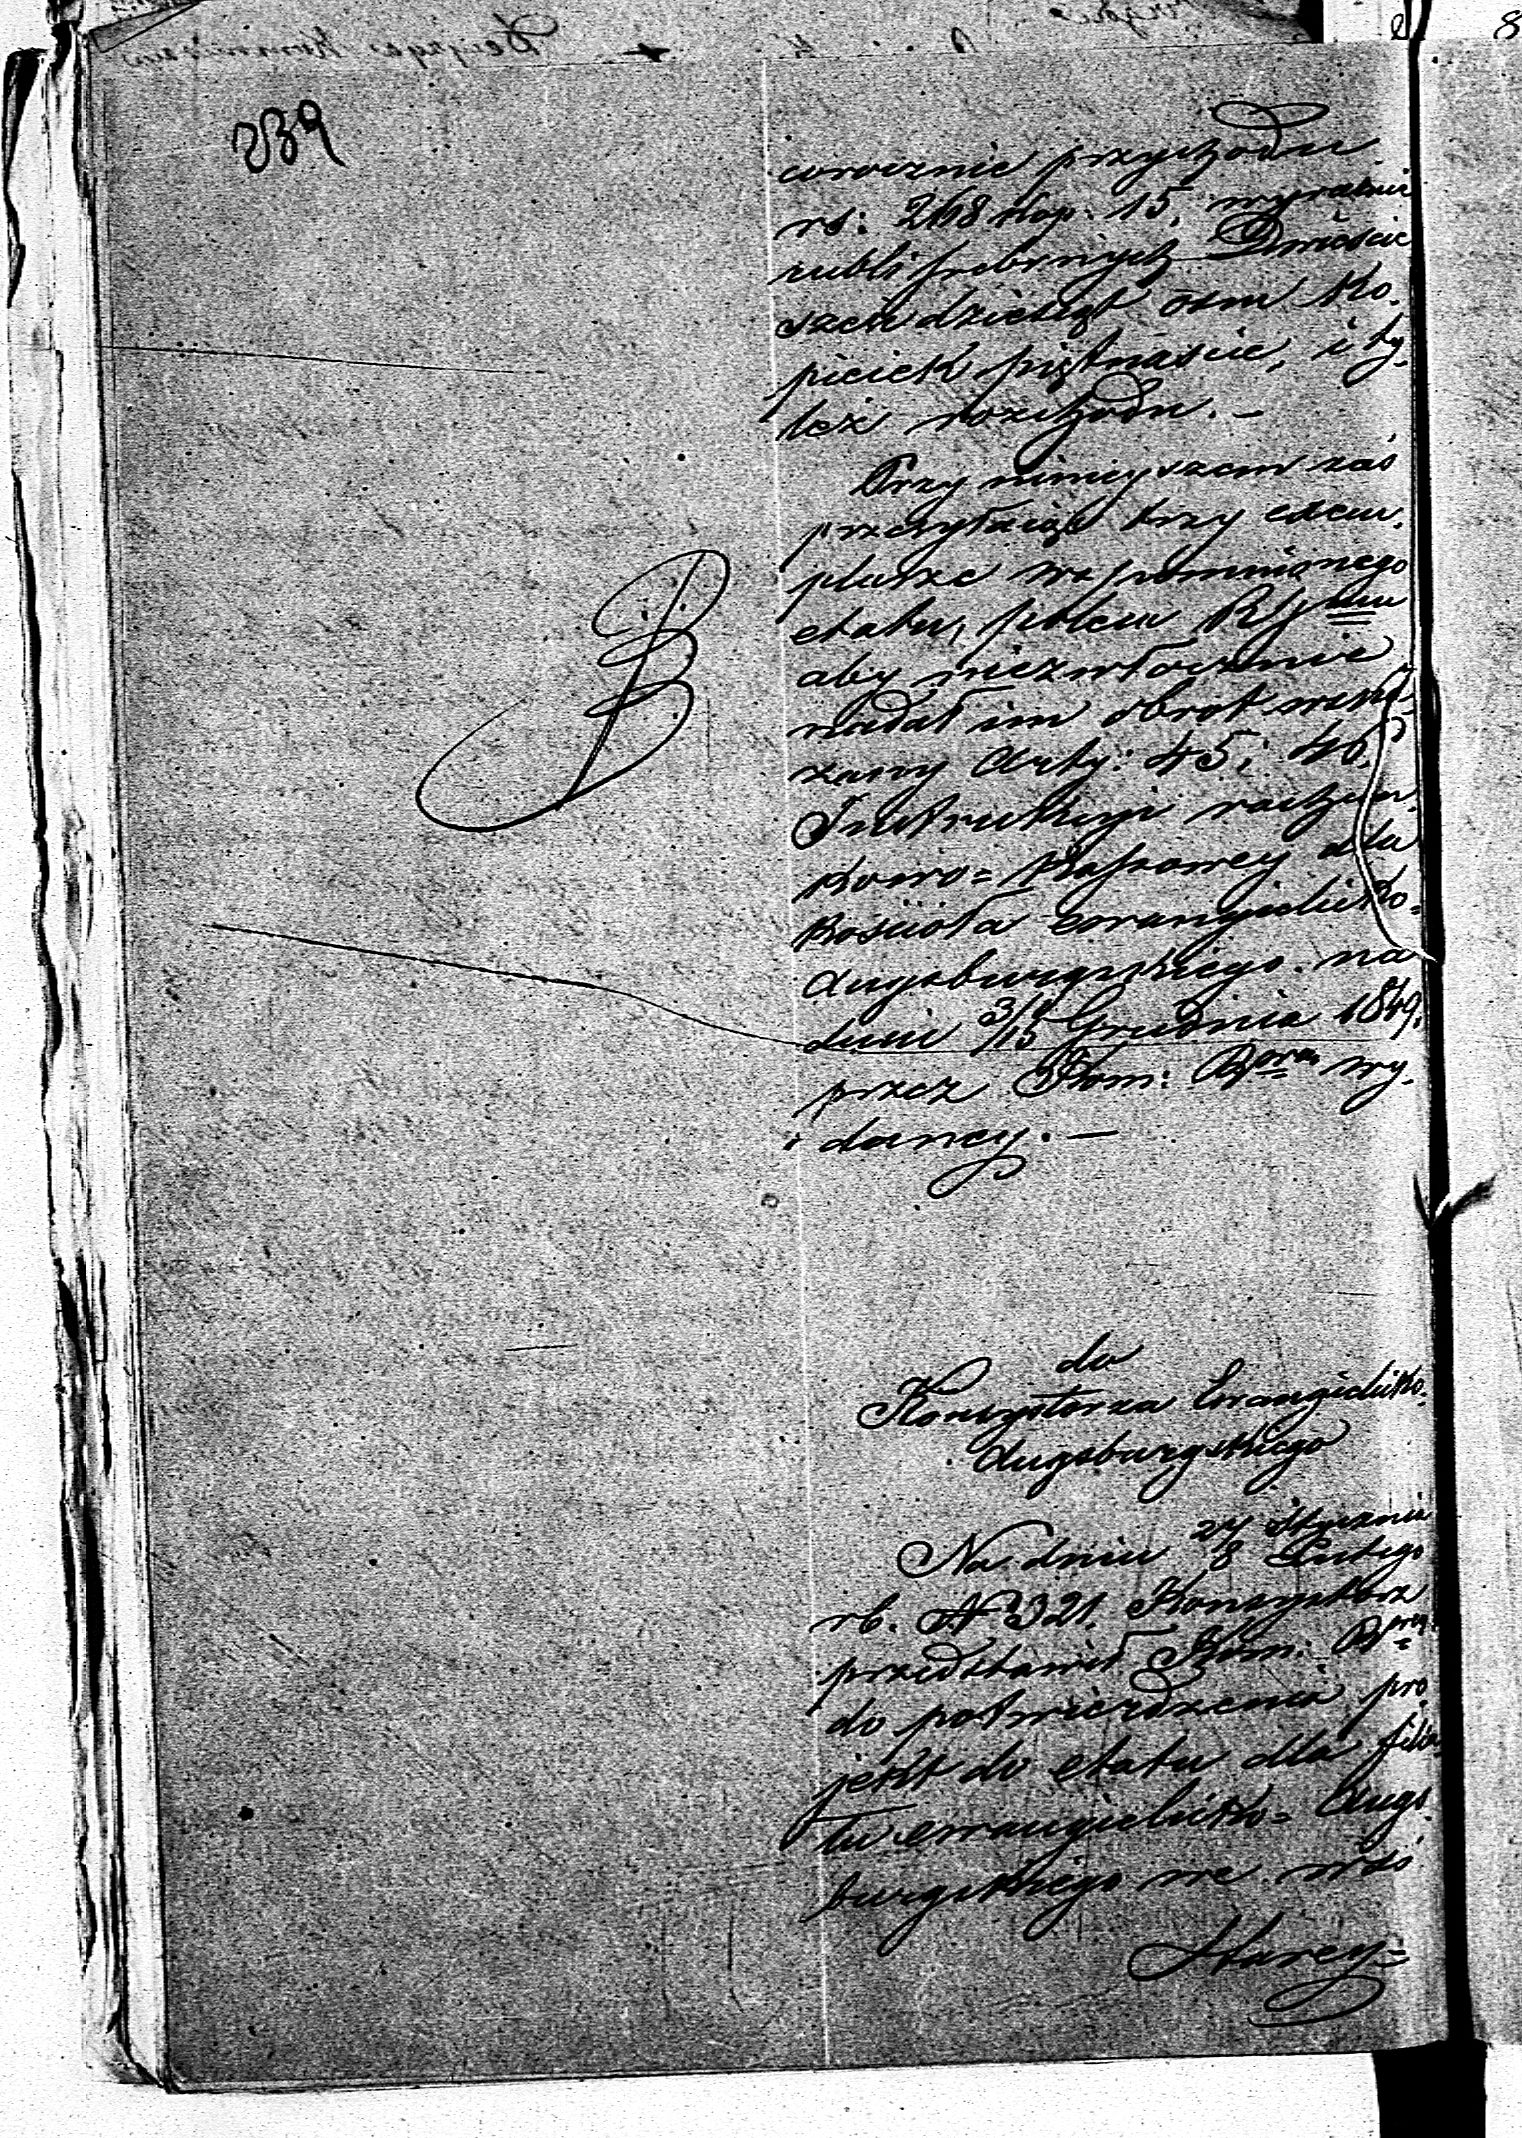 239
corocznie przychodu
rs: 268 kop: 15, wyraźnie
rubli srebrnych Dwieście
sześćdziesiąt ośm ko-
piejek piętnaście, i ty-
leż rozchodu. —
Przy niniejszem zaś
przesyłając trzy exem-
plarze wspomnionego
etatu, poleca
aby niezwłocznie
nadał im obrot wska-
zany Arty: 45 i 46
Instrukcyi rachun-
kowo=kassowey dla
Kościoła ewangelicko-
Augsburgskiego na
dniu 3/15 Grudnia 1849
przez Kom: Rz. wy-
daney. —
do
Konsystorza Ewangielicko-
Augsburgskiego
Na dniu 27 Stycznia
8 Lutego
rb. N 321. Konsystorz
przedstawił Kom: Rz.
do potwierdzenia pro
jekt do etatu dla filia
łu ewangielicko=Augs
burgskiego we wsi
Starey=